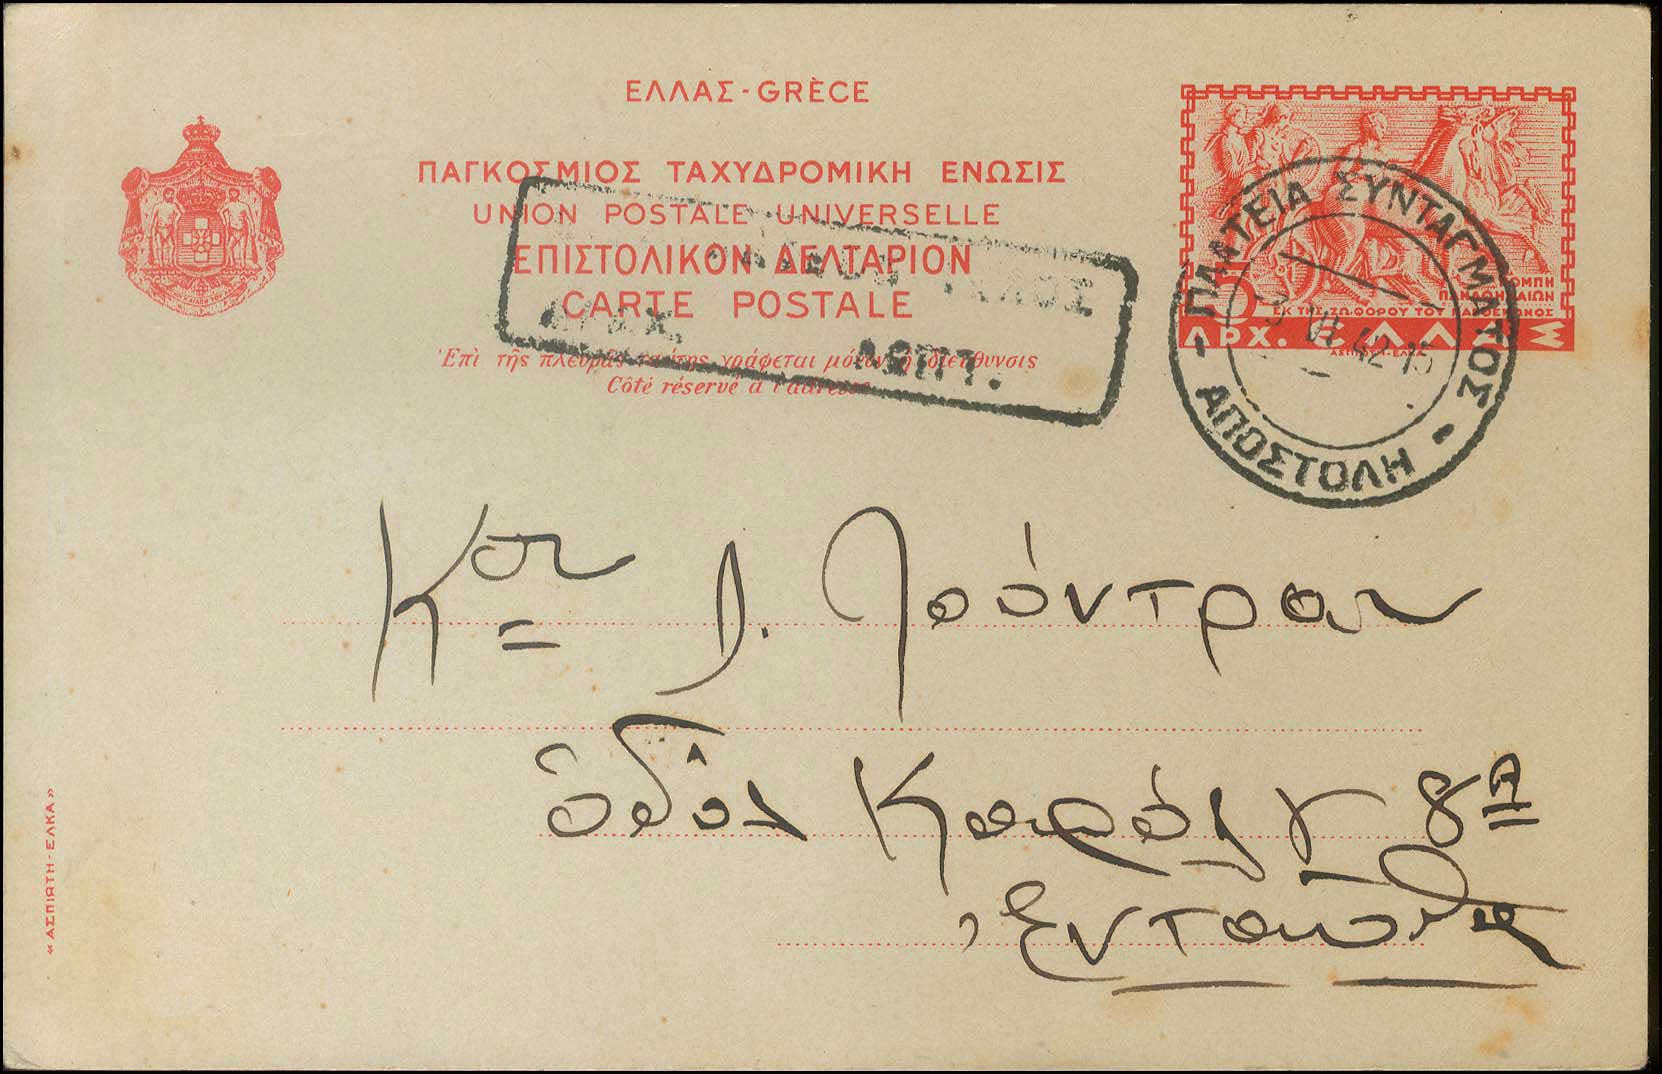 ΕΛΛΑΣ - GRÈCE
ΠΑΓΚΟΣΜΙΟΣ ΤΑΧΥΔΡΟΜΙΚΗ ΕΝΩΣΙΣ
UNION POSTALE UNIVERSELLE
ΕΠΙΣΤΟΛΙΚΟΝ ΔΕΛΤΑΡΙΟΝ
CARTE POSTALE
Ἐπὶ τῆς πλευρᾶς ταύτης γράφεται μόνον ἡ διεύθυνσις
Côté réservé à l'adresse
ΛΕΠΤ.
ΠΟΜΠΗ
ΠΑΝΑΘΗΝΑΙΩΝ
ΕΚ ΤΗΣ ΖΩΟΦΟΡΟΥ ΤΟΥ ΠΑΡΘΕΝΩΝΟΣ
ΔΡΧ. ΕΛΛΑΣ
ΑΣΠΙΩΤΗ-ΕΛΚΑ
ΠΛΑΤΕΙΑ ΣΥΝΤΑΓΜΑΤΟΣ
VI 42-15
- ΑΠΟΣΤΟΛΗ -
Κον Λ. Λούντραν
ὁδὸν Καρόλγ 8α
Ἐνταῦθα
« ΑΣΠΙΩΤΗ - ΕΛΚΑ »